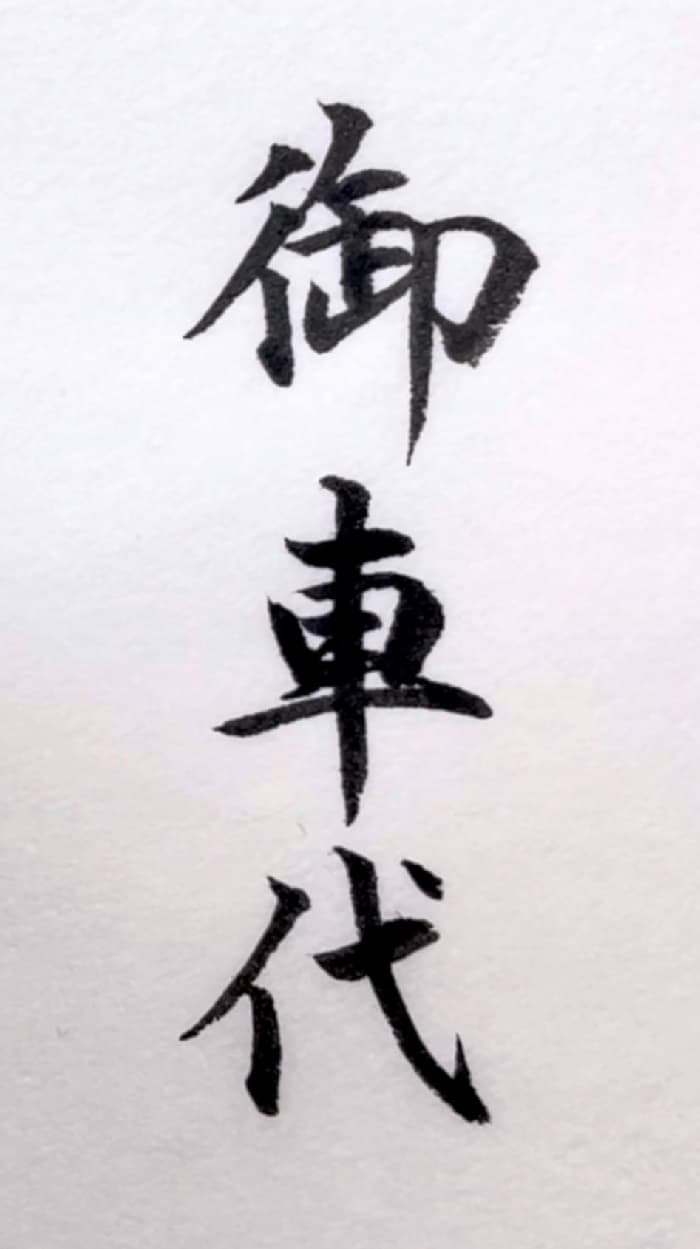 御車代